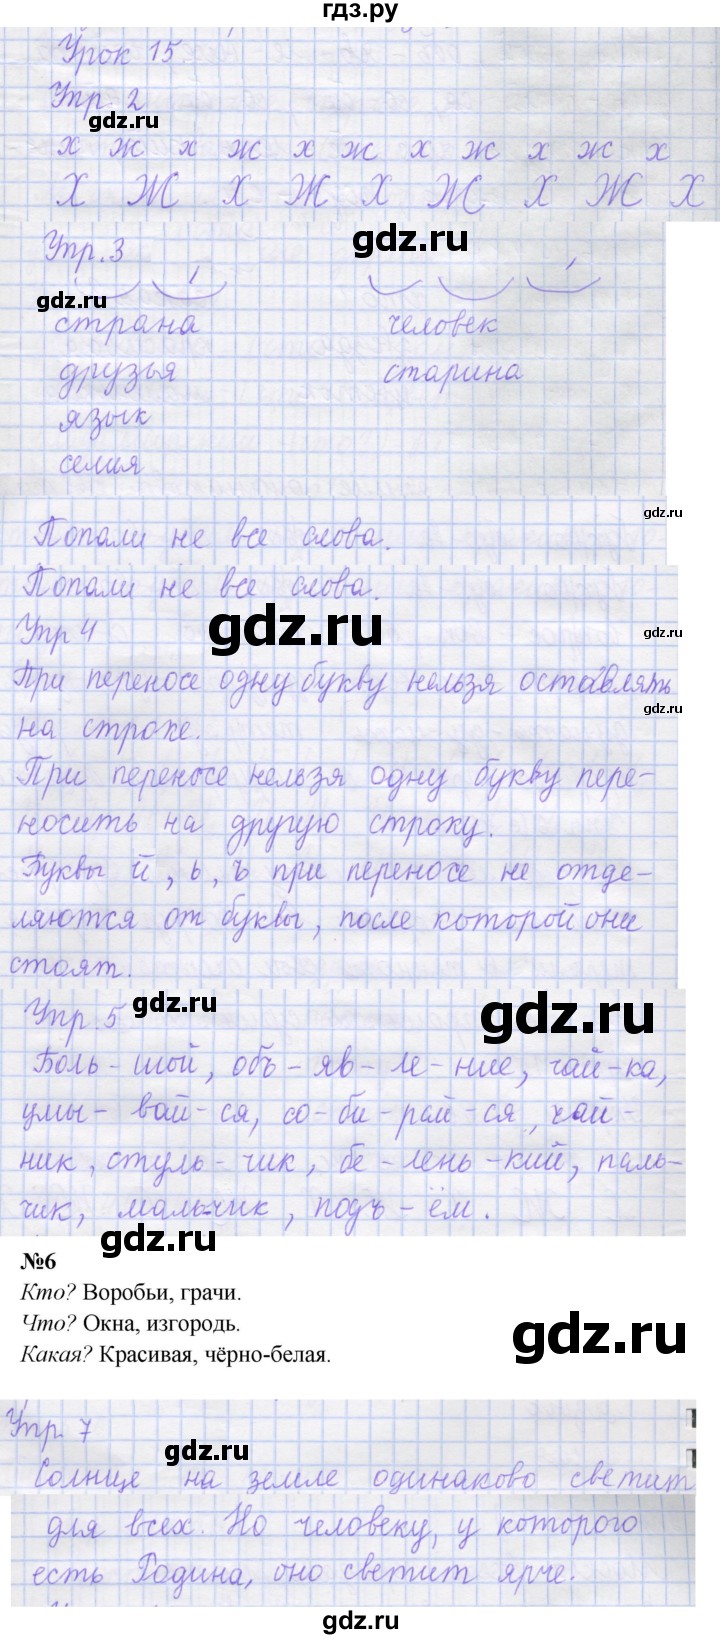 гдз.ру
Урок 15
Упр. 2
gdz.ru
х ж х ж х ж х ж х ж х
Х Ж Х Ж Х Ж Х Ж Х
Упр. 3
gdz.ru
gdz.ru
страна человек
друзья старина
язык
семья
gdz.ru
Попали не все слова.
Попали не все слова.
Упр 4
gdz.ru
gdz.ru
При переносе одну букву нельзя оставлять
gdz.ru
на строке.
При переносе нельзя одну букву пере-
носить на другую строку.
Буквы й, ь, ъ при переносе не отде-
ляются от буквы, после которой они
стоят.
Упр. 5
gdz.ru
gdz.ru
Боль - шой, объ - яв - ле - ние, чай - ка,
умы - вай - ся, со - би - рай - ся, чай -
ник, стуль - чик, бе - лень - кий, паль-
чик, маль-чик, подъ - ём.
№6
Кто? Воробьи, грачи.
Что? Окна, изгородь.
Какая? Красивая, чёрно-белая.
gdz.ru
Упр. 7
gdz.ru
Солнце на земле одинаково светит
для всех. Но человеку, у которого
есть Родина, оно светит ярче.
gdz.ru